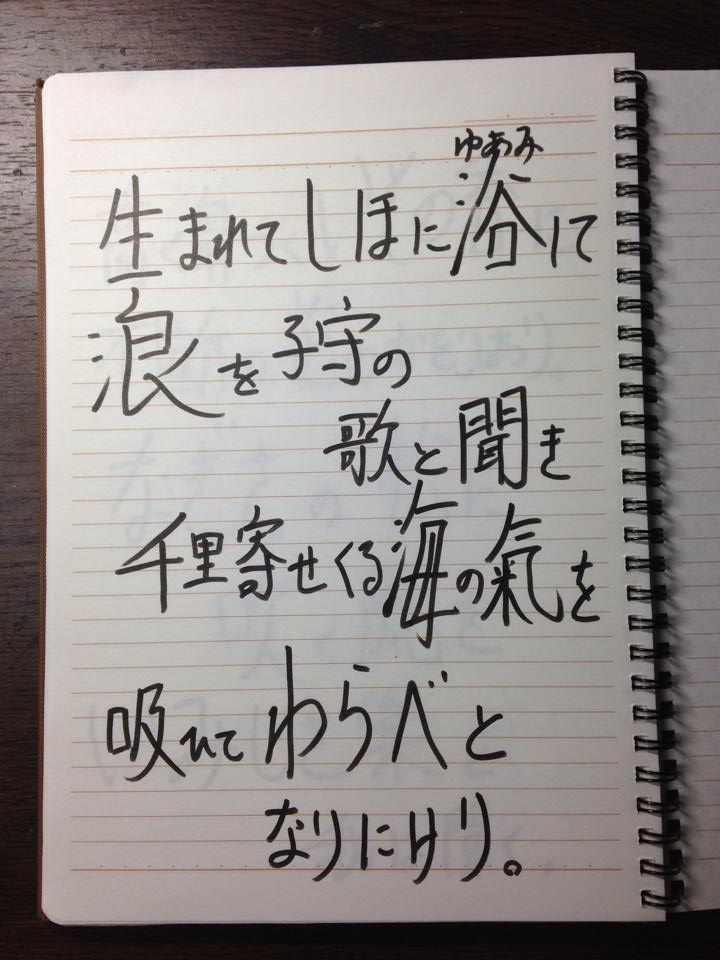 ゆあみ
生まれてしほに浴して
浪を子守の
歌と聞き
千里寄せくる海の氣を
吸ひてわらべと
なりにけり。